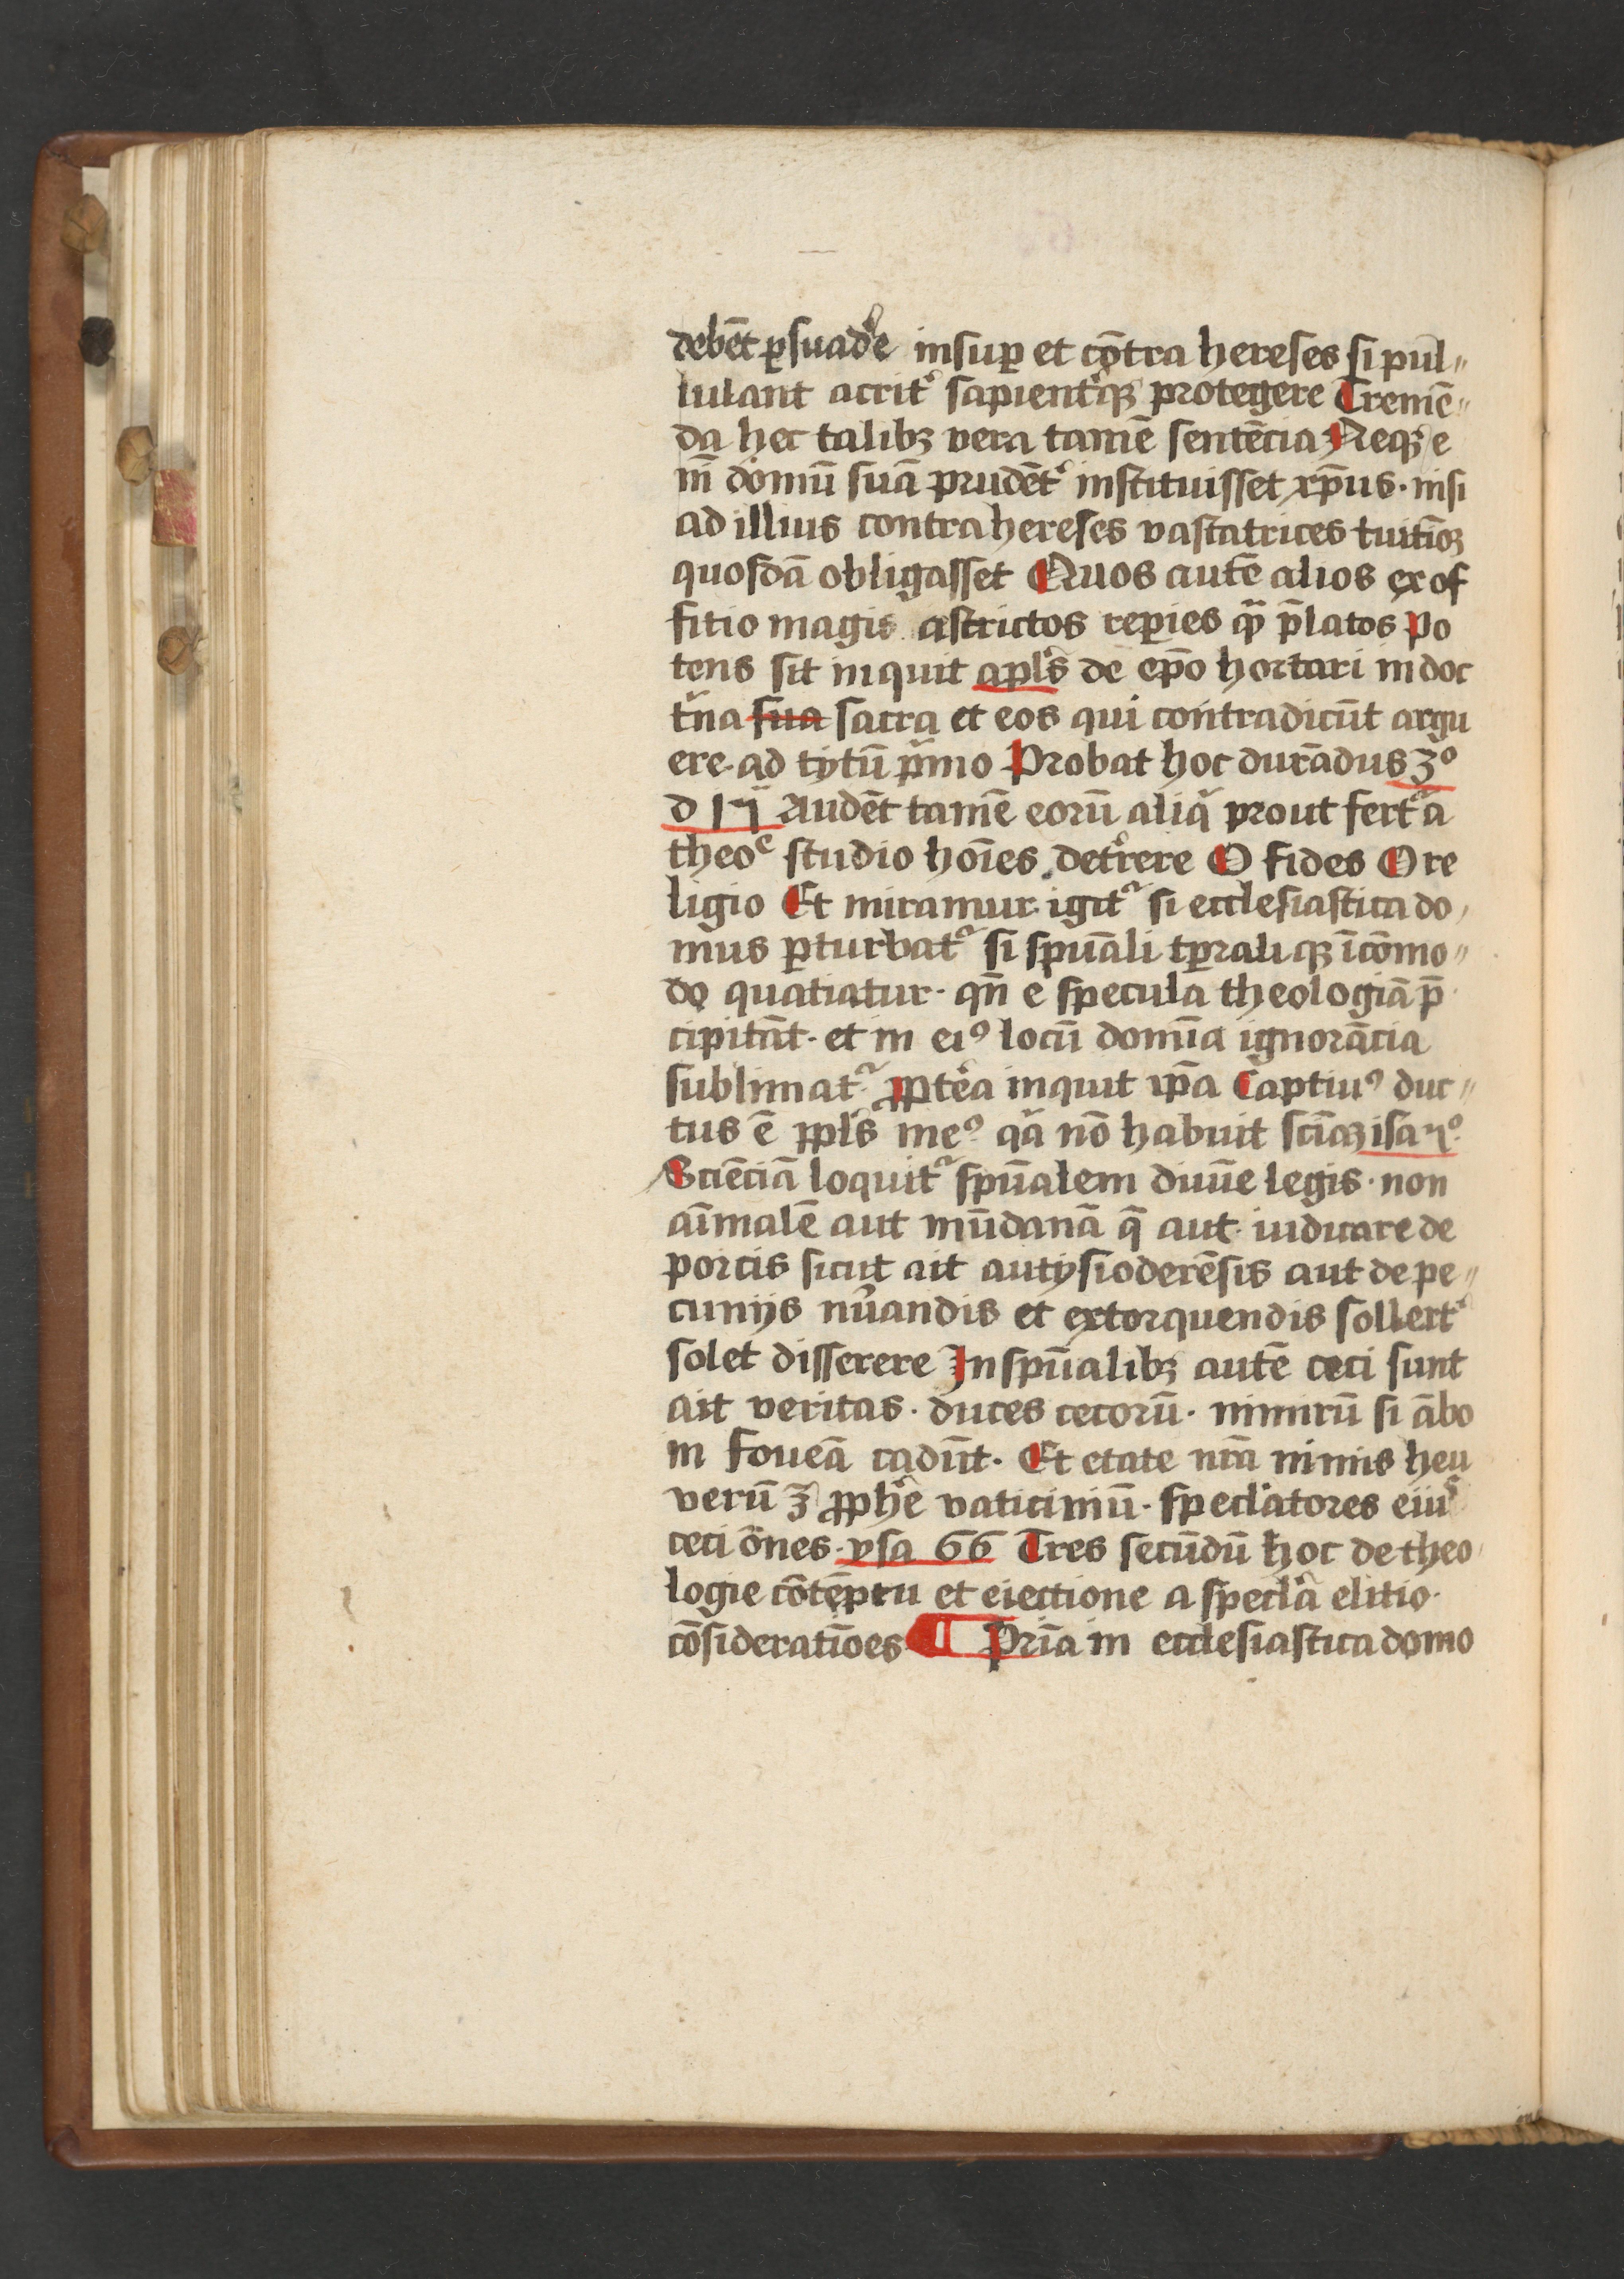 debēt ꝑsuade᷑ insuꝑ et cōtra hereses si pul〃
lulant acrit᷑ sapient᷑qꝫ protegere Tremē〃
da hec talibꝫ vera tamē sentēcia Neqꝫ e
nī domū suā prudēt᷑ instituisset xp̄us · nisi
ad illius contra hereses vastatrices tuitōꝫ
quosdā obligasset Quos autē alios ex of
fitio magis astrictos reperies qͣꝫ p̄latos Po
tens sit inquit apl᷑s de ep̄o hortari in doc
tͥna sua sacra et eos qui contradicūt argu
ere · ad tytū pͥmo Probat hoc durādus 3º
d 17 Audēt tamē eorū aliqͥ prout fert᷑ a
theoᶜ studio hoīes det᷑rere O fides O re
ligio Et miramur igit᷑ si ecclesiastica do〃
mus ꝑturbat᷑ si spūali tꝑaliqꝫ īcōmo〃
do quatiatur · qn̄ e specula theologiā p̄
cipitāt · et in eiꝰ locū domīa ignorācia
sublimat᷑ ꝓpt᷑ea inquit ip̄a Captiuꝰ duc〃
tus ē ppl᷑s meꝰ qͣa nō habuit scīaꝫ isa
Sciēciā loquit᷑ spūalem diuīe legis · non
aīmalē aut mūdanā q̄ aut iudicare de
porcis sicut ait autysioderēsis aut de pe〃
cunijs nu᷑andis et extorquendis sollert᷑
solet disserere In spūalibꝫ autē ceci sunt
ait veritas · duces cecorū · nimirū si ābo
in foueā cadūt · Et etate nr̄a nimis heu
verū ꝫ̄ ꝓph᷑e vaticiniū · specl᷑atores eiuꝰ
ceci ōnes · ysa 66 Tres secūdū hoc de theo
logie cōtēptu et eiectione a specl᷑a elitio·
cōsideratiōes Prīa in ecclesiastica domo